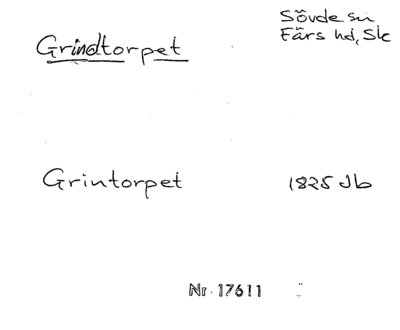 Grindtorpet
Sövde sn
Färs hd, Sk
Grintorpet
1825 Jb
Nr 17611